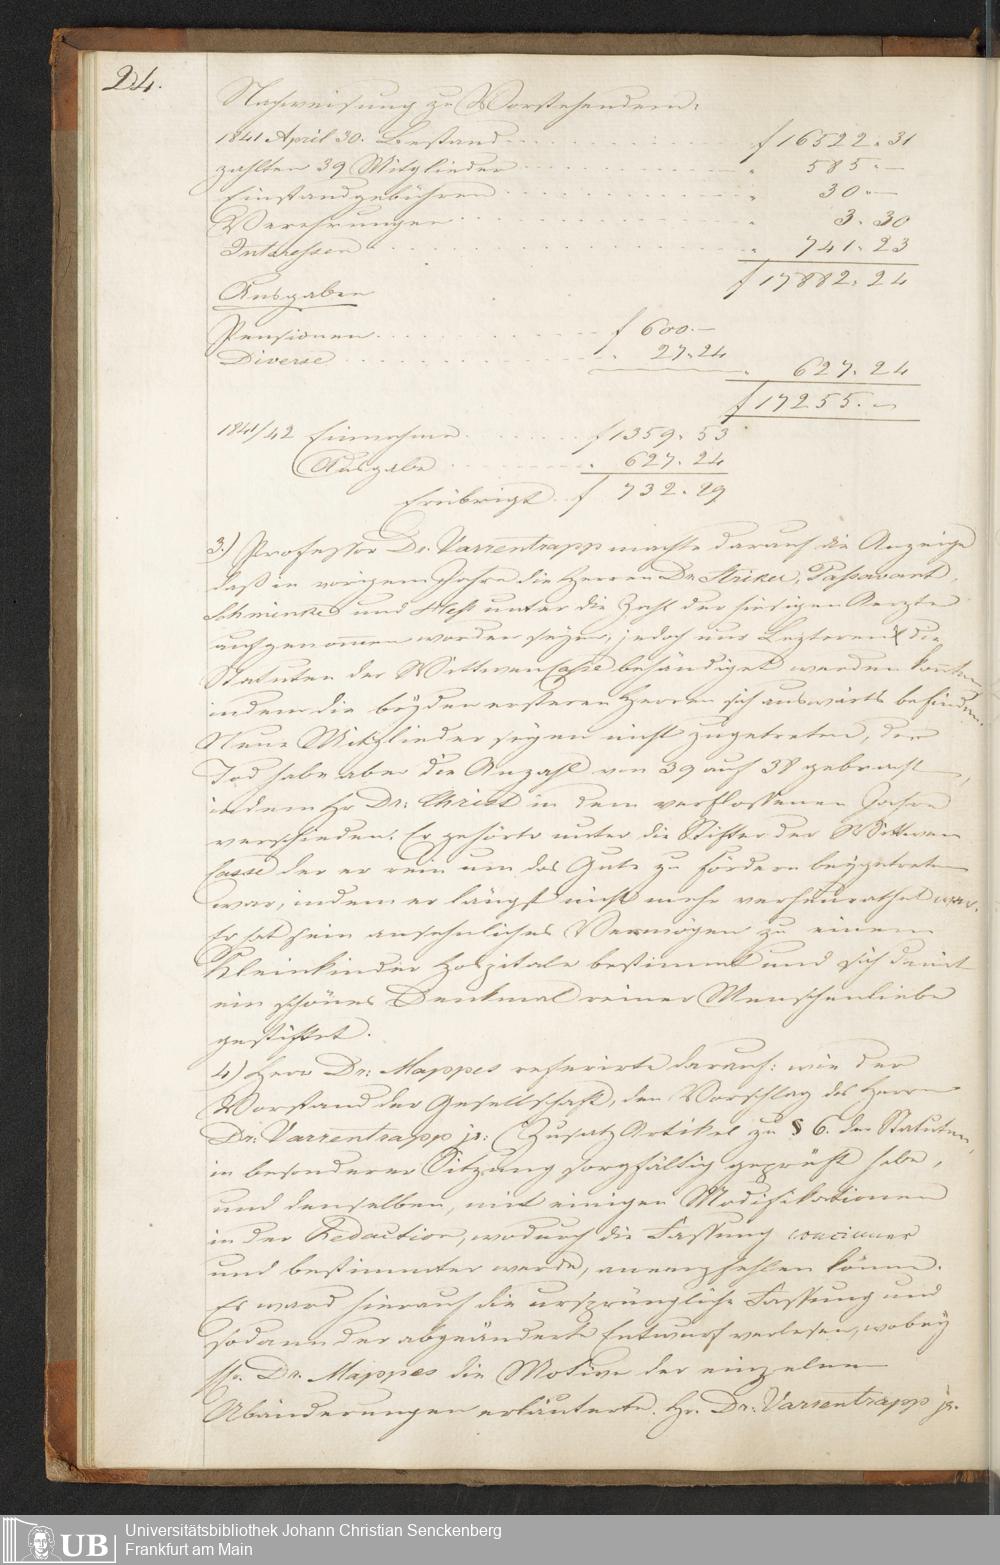 24.
Nachweisung zu Vorstehendem:
1841 April 30. Bestand . . . . . . . . . . f 16522. 31
zahlten 39 Mitglieder . . . . . . . . . . " 585. —
Einstandgebühren . . . . . . . . . . " 30. —
Verehrungen . . . . . . . . . . " 3. 30
Interessen . . . . . . . . . . " 741. 23
f 17882. 24
Ausgaben
Pensionen . . . . . . . . . . f 600. —
Diverse . . . . . . . . . . " 27. 24
" 627. 24
f 17255. —
1841/42 Einnahme . . . . . . . f 1359. 53
Ausgabe . . . . . . . " 627. 24
Erübrigt . f 732. 29
3.) Professor Dr. Varrentrapp machte darauf die Anzeige
daß in vorigem Jahre die Herren Dr. Stricker, Passavant,
Schminke und Heß unter die Zahl der hiesigen Aerzte
aufgenommen worden seyen, jedoch nur Lezteren die
Statuten der WittwenCasse behändiget werden konnten
indem die beyden ersteren Herren sich auswärts befinden.
Neue Mitglieder seyen nicht zugetreten, der
Tod habe aber die Anzahl von 39 auf 38 gebracht,
indem Hr Dr: Christ in dem verflossenen Jahre
verschieden. Er gehörte unter die Stifter der Wittwen
Casse der er rein um das Gute zu fördern beygetreten
war, indem er längst nicht mehr verheurathet war.
Er hat sein ansehnliches Vermögen zu einem
Kleinkinder Hospitale bestimmt und sich damit
ein schönes Denkmal reiner Menschenliebe
gestiftet.
4) Herr Dr: Mappes referirte darauf: wie der
Vorstand der Gesellschaft, den Vorschlag des Herrn
Dr: Varrentrapp jr: (Zusatz Artikel zu § 6. der Statuten,
in besonderer Sitzung sorgfältig geprüft habe,
und denselben, mit einigen Modifikationen
in der Redaction, wodurch die Fassung conciner
und bestimmter werde, anempfehlen könne.
Es ward hierauf die ursprüngliche Fassung und
sodann der abgeänderte Entwurf verlesen, wobey
Hr. Dr. Mappes die Motive der einzelnen
Abänderungen erläuterte. Hr. Dr: Varrentrapp jr.
UB
Universitätsbibliothek Johann Christian Senckenberg
Frankfurt am Main